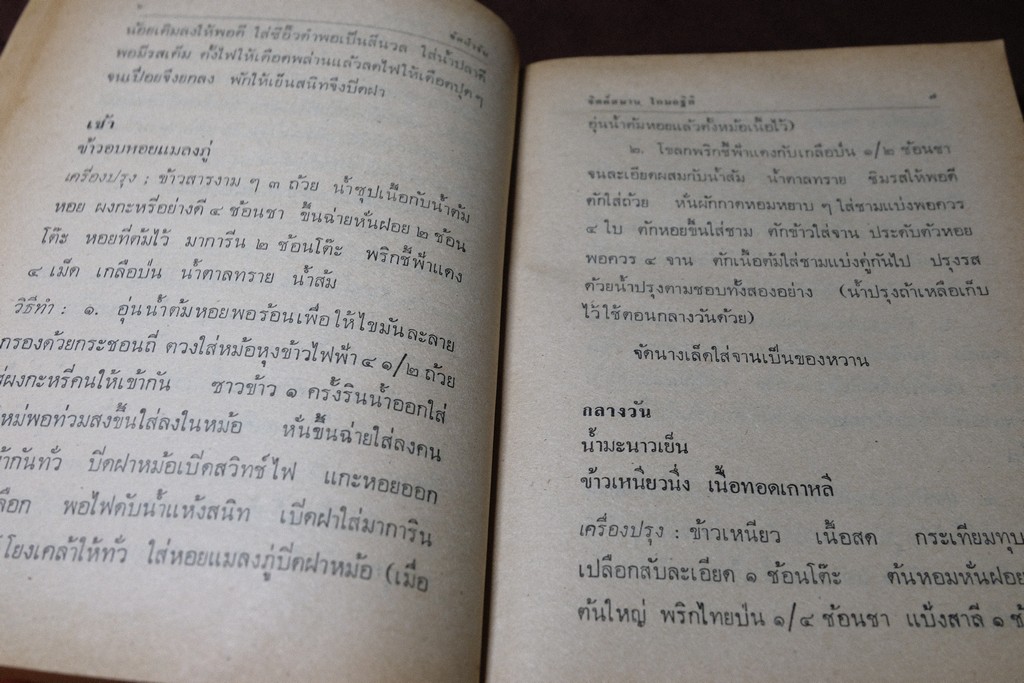 จัดสำรับ
น้อยเติมลงให้พอดี ใส่ซีอิ๊วดำพอเป็นสีนวล ใส่น้ำปลาดี
พอมีรสเค็ม ตั้งไฟให้เดือดพล่านแล้วลดไฟให้เดือดปุด ๆ
จนเปื่อยจึงยกลง พักให้เย็นสนิทจึงปิดฝา
เช้า
ข้าวอบหอยแมลงภู่
เครื่องปรุง : ข้าวสารงาม ๆ ๓ ถ้วย น้ำซุปเนื้อกับน้ำต้ม
หอย ผงกะหรี่อย่างดี ๔ ช้อนชา ขึ้นฉ่ายหั่นฝอย ๒ ช้อน
โต๊ะ หอยที่ต้มไว้ มาการีน ๒ ช้อนโต๊ะ พริกชี้ฟ้าแดง
๔ เม็ด เกลือป่น น้ำตาลทราย น้ำส้ม
วิธีทำ : ๑. อุ่นน้ำต้มหอยพอร้อนเพื่อให้ไขมันละลาย
กรองด้วยกระชอนถี่ ตวงใส่หม้อหุงข้าวไฟฟ้า ๔ ๑/๒ ถ้วย
ส่ผงกะหรี่คนให้เข้ากัน ซาวข้าว ๑ ครั้งรินน้ำออกใส่
ใหม่พอท่วมสงขึ้นใส่ลงในหม้อ หั่นขึ้นฉ่ายใส่ลงคน
ข้ากันทั่ว ปิดฝาหม้อเปิดสวิทช์ไฟ แกะหอยออก
ลือก พอไฟดับน้ำแห้งสนิท เปิดฝาใส่มาการิน
โยงเคล้าให้ทั่ว ใส่หอยแมลงภู่ปิดฝาหม้อ (เมื่อ
จิตต์สมาน โกมลฐิติ
อุ่นน้ำต้มหอยแล้วตั้งหม้อเนื้อไว้)
๒. โขลกพริกชี้ฟ้าแดงกับเกลือป่น ๑/๒ ช้อนชา
จนละเอียดผสมกับน้ำส้ม น้ำตาลทราย ชิมรสให้พอดี
ตักใส่ถ้วย หั่นผักกาดหอมหยาบ ๆ ใส่ชามแบ่งพอควร
๔ ใบ ตักหอยขึ้นใส่ชาม ตักข้าวใส่จาน ประดับตัวหอย
พอควร ๔ จาน ตักเนื้อต้มใส่ชามแบ่งคู่กันไป ปรุงรส
ด้วยน้ำปรุงตามชอบทั้งสองอย่าง (น้ำปรุงถ้าเหลือเก็บ
ไว้ใช้ตอนกลางวันด้วย)
จัดนางเล็ดใส่จานเป็นของหวาน
กลางวัน
น้ำมะนาวเย็น
ข้าวเหนียวนึ่ง เนื้อทอดเกาหลี
เครื่องปรุง : ข้าวเหนียว เนื้อสด กระเทียมทุบ
เปลือกสับละเอียด ๑ ช้อนโต๊ะ ต้นหอมหั่นฝอย
ต้นใหญ่ พริกไทยป่น ๑/๔ ช้อนชา แป้งสาลี ๑ ช้